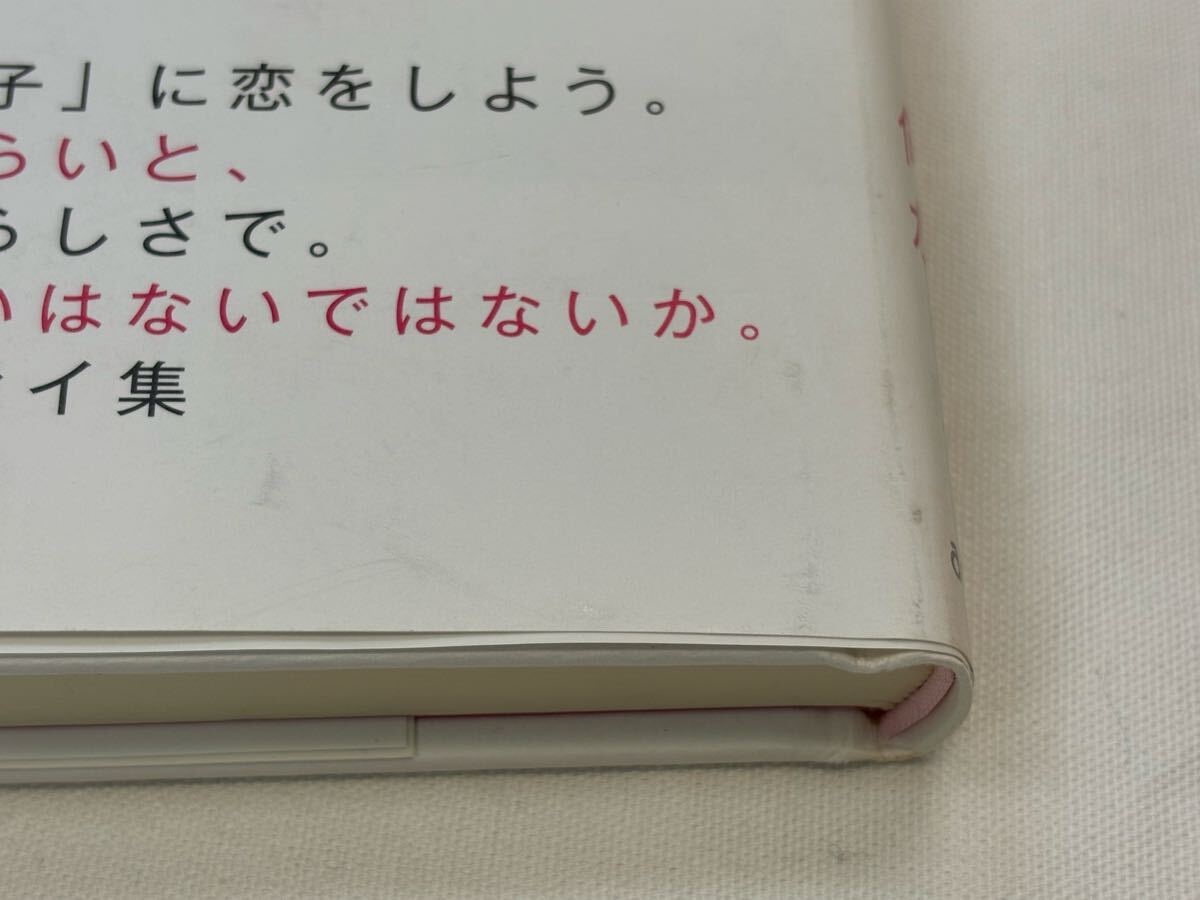 子」に恋をしよう。
らいと、
らしさで。
いはないではないか。
イ集